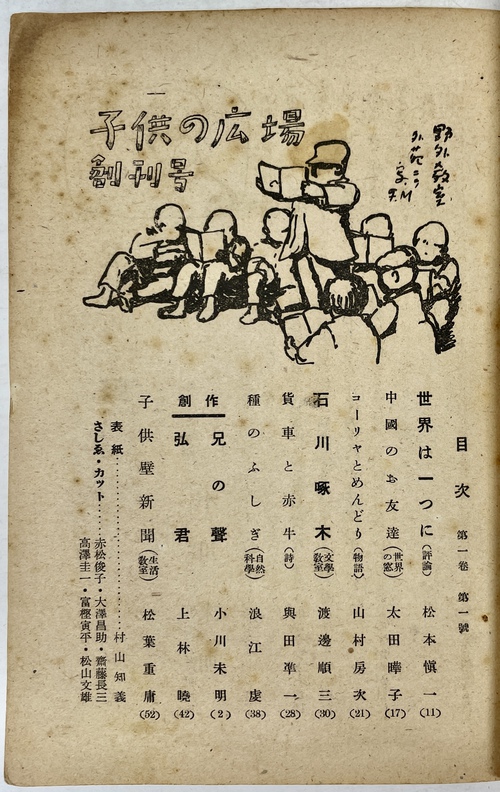 子供の広場
創刊号
野外教室
外苑ニテ
目次 第一卷 第一號
世界は一つに(評論) 松本愼一(11)
中國のお友達(世界の窓) 太田曄子(17)
コーリャとめんどり(物語) 山村房次(21)
石川啄木(文學教室) 渡邊順三(30)
貨車と赤牛(詩) 與田凖一(28)
種のふしぎ(自然科學) 浪江虔(38)
創作
兄の聲 小川未明(2)
弘君 上林曉(42)
子供壁新聞(生活教室) 松葉重庸(52)
表紙 村山知義
さしゑ・カット 赤松俊子・大澤昌助・齋藤長三
高澤圭一・富樫寅平・松山文雄